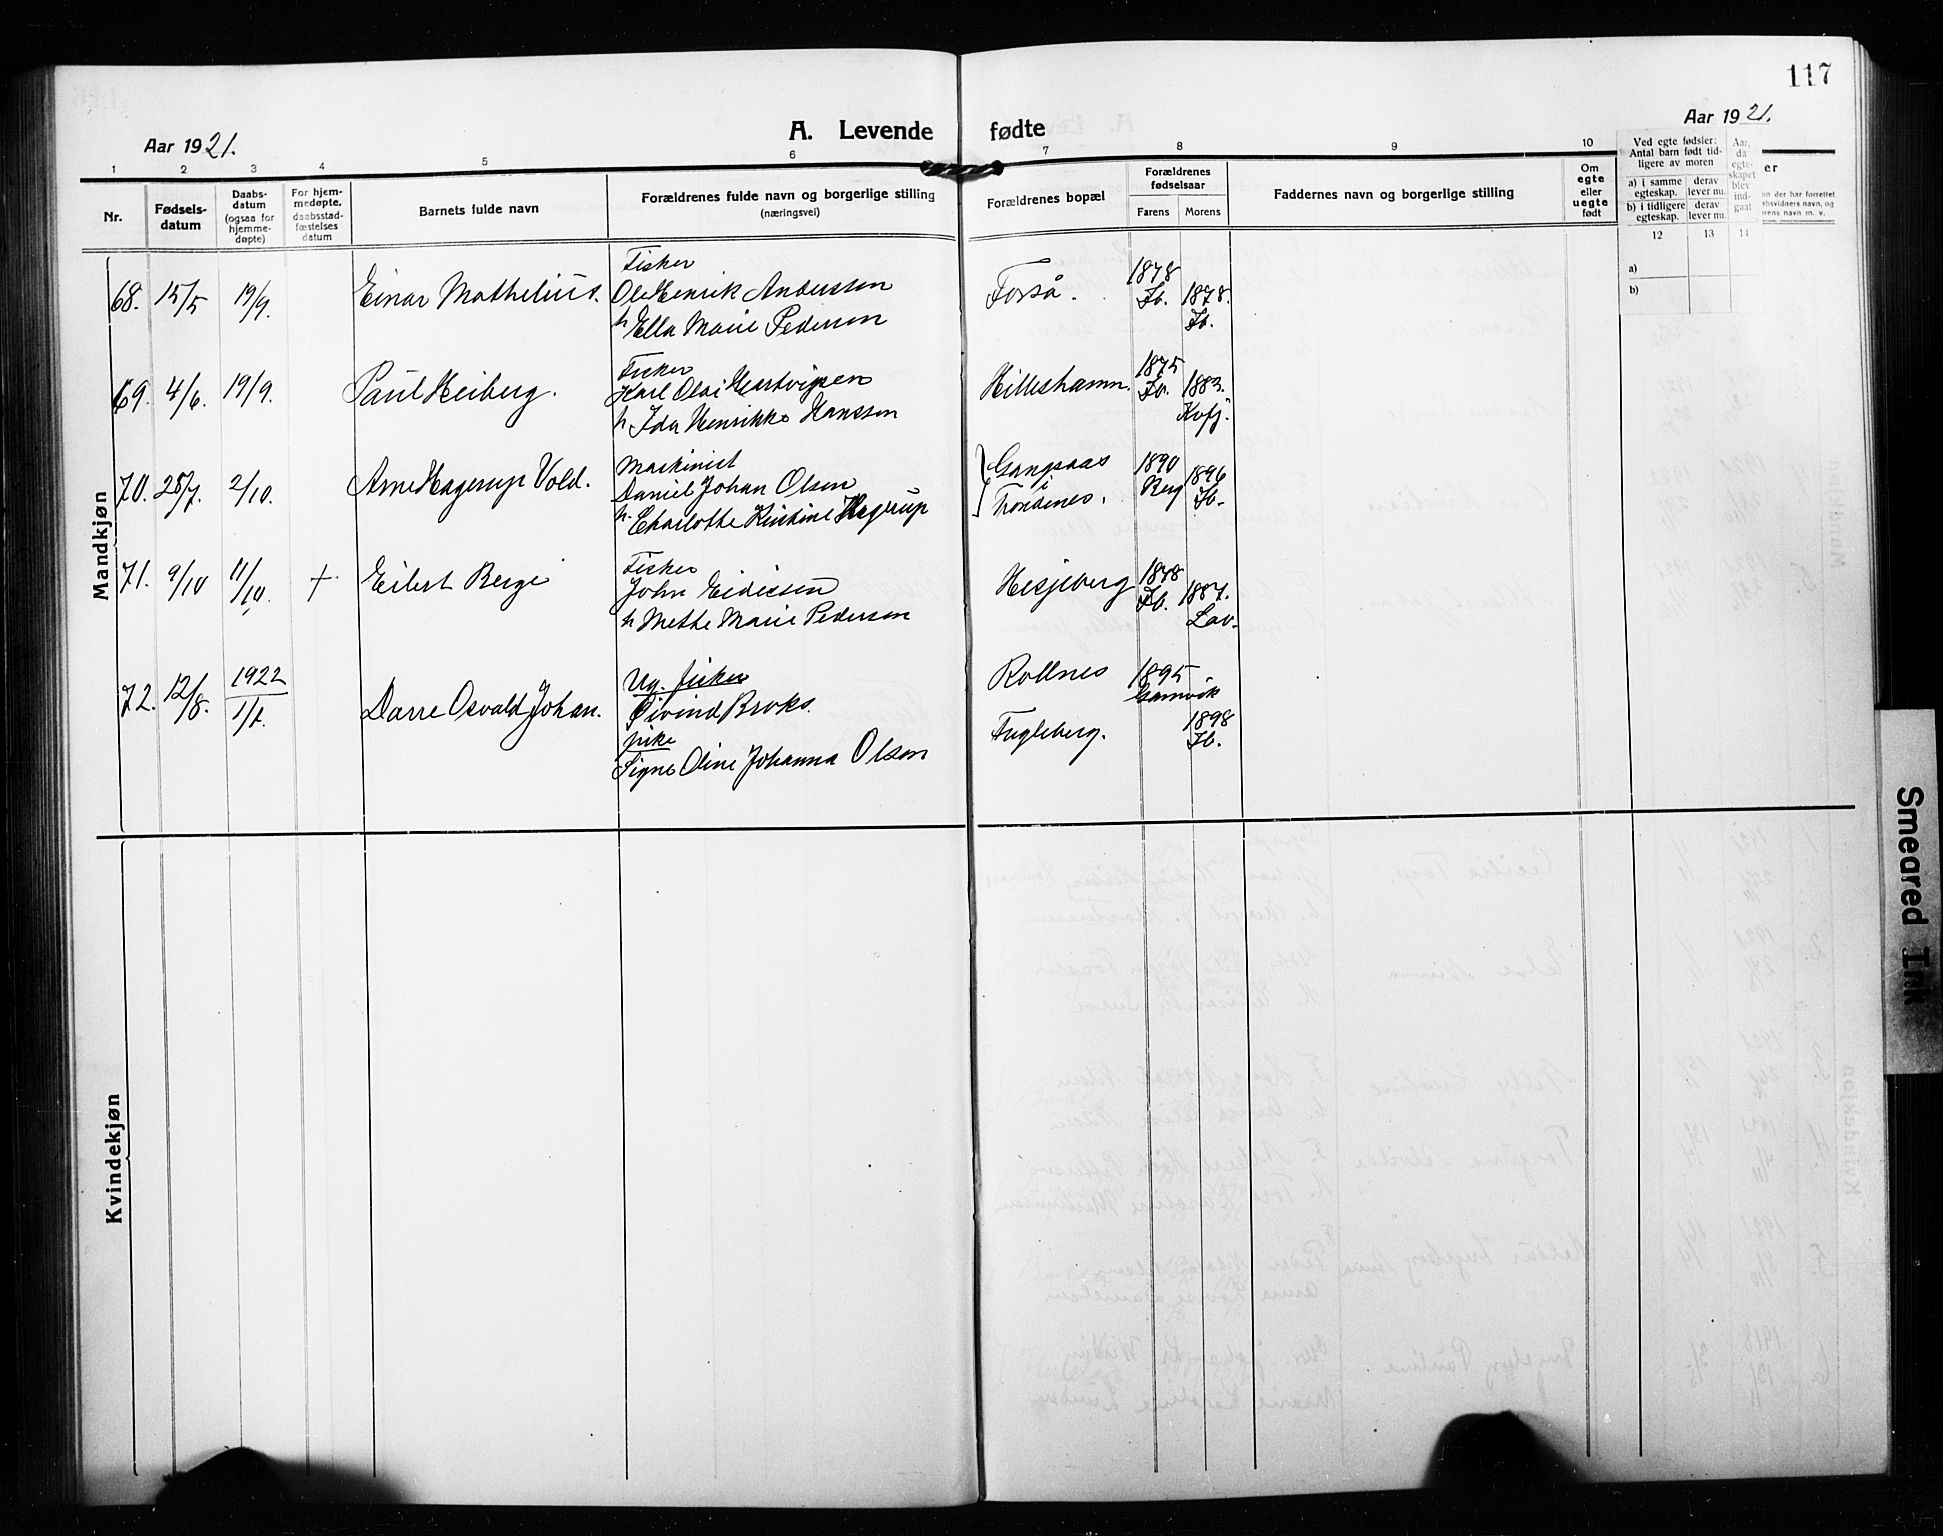 117
Aar 1921.
A. Levende fødte
Aar 1921.
1 2 3 4 5 6 7 8 9 10
Nr.
Fødsels-
datum
Daabs-
datum
(ogsaa for
hjemme-
døpte)
For hjem-
medøpte,
daabsstad-
fæstelses
datum
Barnets fulde navn
Forældrenes fulde navn og borgerlige stilling
(næringsvei)
Forældrenes bopæl
Forældrenes
fødselsaar
Farens Morens
Faddernes navn og borgerlige stilling
Om
egte
eller
uegte
født
Ved egte fødsler:
Antal barn født tid-
ligere av moren
a) i samme
egteskap.
derav
lever nu.
b) i tidligere
egteskap.
derav
lever nu.
Aar,
da
egte-
skapet
blev
ind-
gaat
12 13 14
a)
b)
er
Mandkjøn
68. 15/5 19/9. Einar Mathelius.
Fisker
Ole Henrik Anderssen
h Ella Marie Pedersen
Forså.
1878
Ib.
1878.
Ib.
69. 4/6. 19/9. Paul Heiberg.
Fisker
Karl Olai Hartvigsen
h Ida Henrikke Hanssen
Hilleshamn.
1875
Ib.
1883.
Kvfj.
70. 28/7. 2/10. Arne Hagerup Vold.
Maskinist
Daniel Johan Olsen
h. Charlotte Kirstine Hagerup
Gangsaas
i
Trondenes.
1890
Berg
1896
Ib.
71. 9/10 11/10. + Eilert Berge
Fisker
John Eidissen
h Mette Marie Pedersen
Hesjeberg
1878
Ib.
1887.
Lav.
72. 12/8. 1922 1/1. Darre Osvald Johan.
Ug. fisker
Øivind Broks.
pike
Signe Oline Johanna Olsen
Rollnes
Fugleberg.
1895
Gamvik
1898
Ib.
Kvindekjøn
Smeared Ink